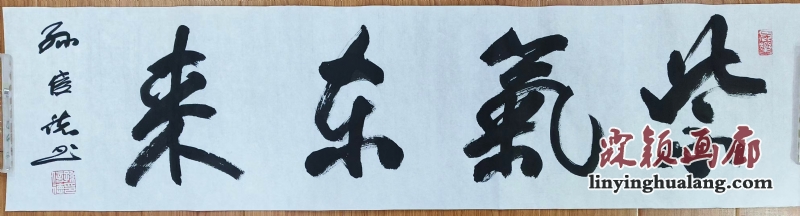 紫氣东来
孙信德书
霖颖画廊
linyinghualang.com